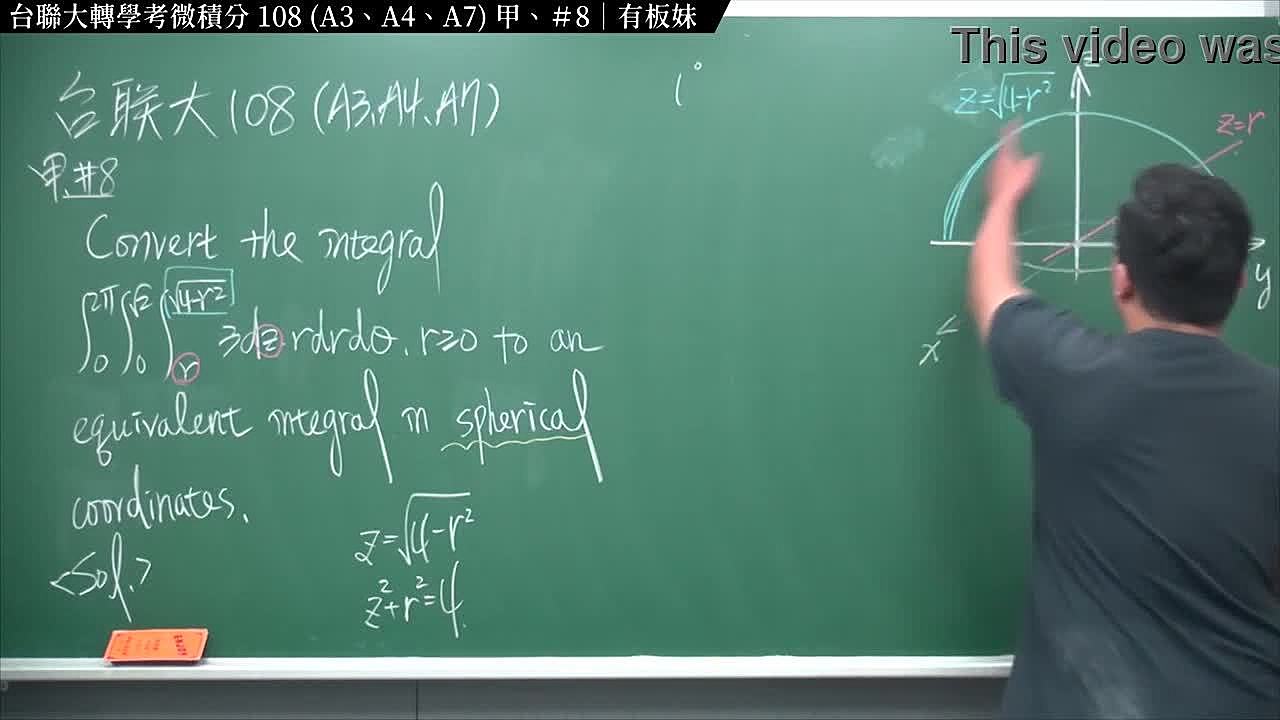 台聯大轉學考微積分 108 (A3、A4、A7) 甲、#8｜有板妹
This video was
台联大108 (A3、A4、A7)
甲、#8
Convert the integral
∫₀^{2π}∫₀^{√2}∫_r^{√(4-r²)} 3dz rdrdθ, r≥0 to an
equivalent integral in spherical
coordinates.
<Sol.>
z=√(4-r²)
z²+r²=4.
1°
z=√(4-r²)
z
z=r
y
x